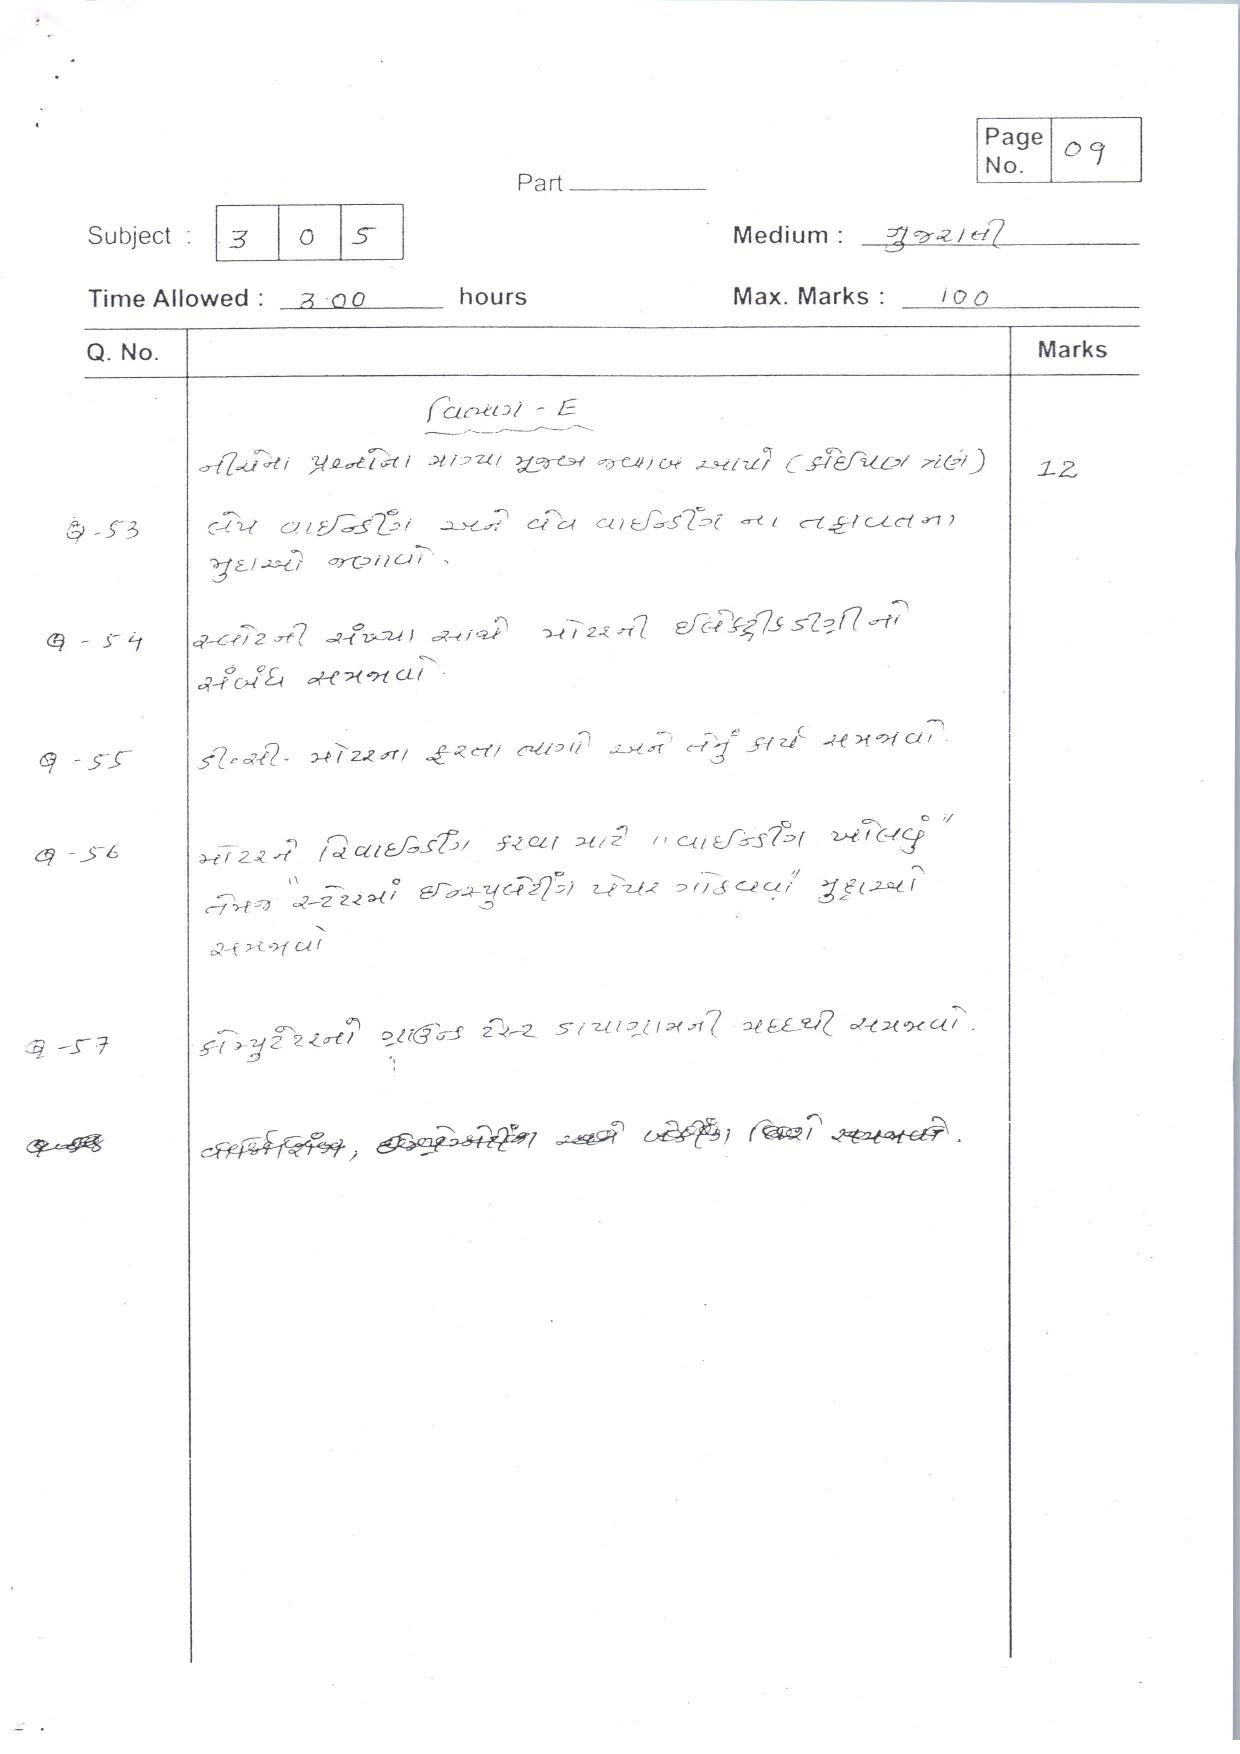 Page No. 09
Part
Subject : 3 0 5 Medium : ગુજરાતી
Time Allowed : 3.00 hours Max. Marks : 100
Q. No. Marks
વિભાગ - E
નીચેના પ્રશ્નોના માગ્યા મુજબ જવાબ આપો (કોઈપણ ત્રણ) 12
Q-53 લેપ વાઈન્ડીંગ અને વેવ વાઈન્ડીંગ ના તફાવતના
મુદ્દાઓ જણાવો.
Q-54 સ્લોટની સંખ્યા સાથે મોટરની ઈલેક્ટ્રીકડીગ્રીનો
સંબંધ સમજાવો.
Q-55 ડી.સી. મોટરના ફરતા ભાગો અને તેનું કાર્ય સમજાવો.
Q-56 મોટરને રિવાઈન્ડીંગ કરવા માટે "વાઈન્ડીંગ ખોલવું"
તેમજ "સ્ટેટરમાં ઈન્સ્યુલેટીંગ પેપર ગોઠવવો" મુદ્દાઓ
સમજાવો
Q-57 કોમ્યુટેટરનો ગ્રાઉન્ડ ટેસ્ટ કાચાગ્રામની મદદથી સમજાવો.